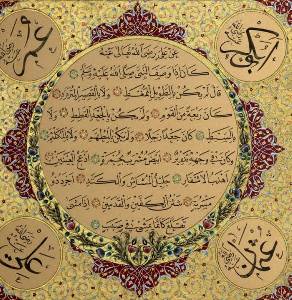 ابوبكر
عمر
عن علي رضي الله تعالى عنه
كان اذا وصف النبي صلى الله عليه وسلم
قال لم يكن بالطويل الممغط ولا بالقصير المتردد
كان ربعة من القوم ولم يكن بالجعد القطط ولا
بالسبط كان جعدا رجلا ولم يكن بالمطهم ولا بالمكلثم
وكان في وجهه تدوير ابيض مشرب ادعج العينين
اهدب الاشفار جليل المشاش والكتد اجرد ذو
مسربة شثن الكفين والقدمين اذا مشى
تقلع كانما يمشي في صبب
عثمان
علي